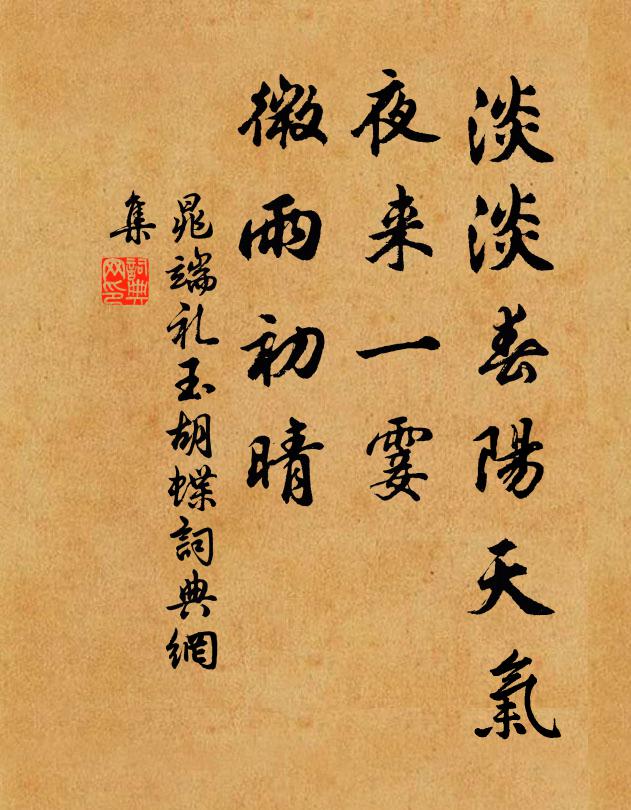 淡淡春陽天氣
夜来一霎
微雨初晴
晁端礼玉胡蝶詞典網
集
詞典
网印